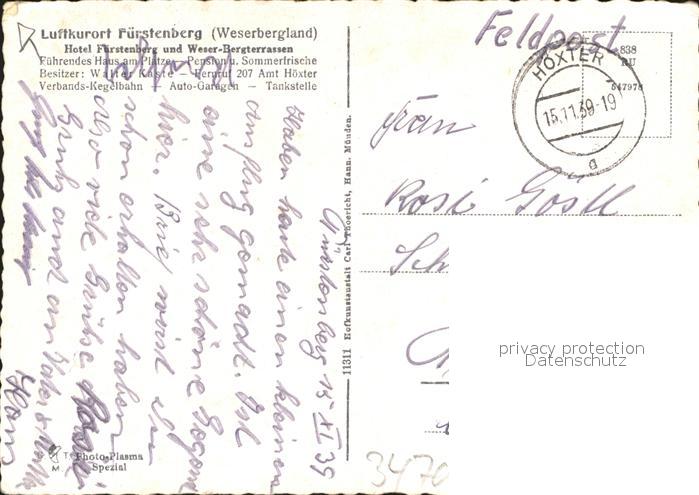 Luftkurort Fürstenberg (Weserbergland)
Hotel Fürstenberg und Weser-Bergterrassen
Führendes Haus am Platze — Pension u. Sommerfrische
Besitzer: Walter Kaste — Fernruf 207 Amt Höxter
Verbands-Kegelbahn — Auto-Garagen — Tankstelle
Fürstenberg 15 XI 39
Haben heute einen kleinen
Ausflug gemacht. Ist
eine sehr schöne Gegend
hier. Brief wirst du
schon erhalten haben
also viele Grüße
Hans
Photo-Plasma
Spezial
11311 Hofkunstanstalt Carl Thoericht, Hann. Münden.
Feldpost
838
RU
547978
HÖXTER
15.11.39-19
a
Frau
Rosi Göstl
Sch
privacy protection
Datenschutz
3470